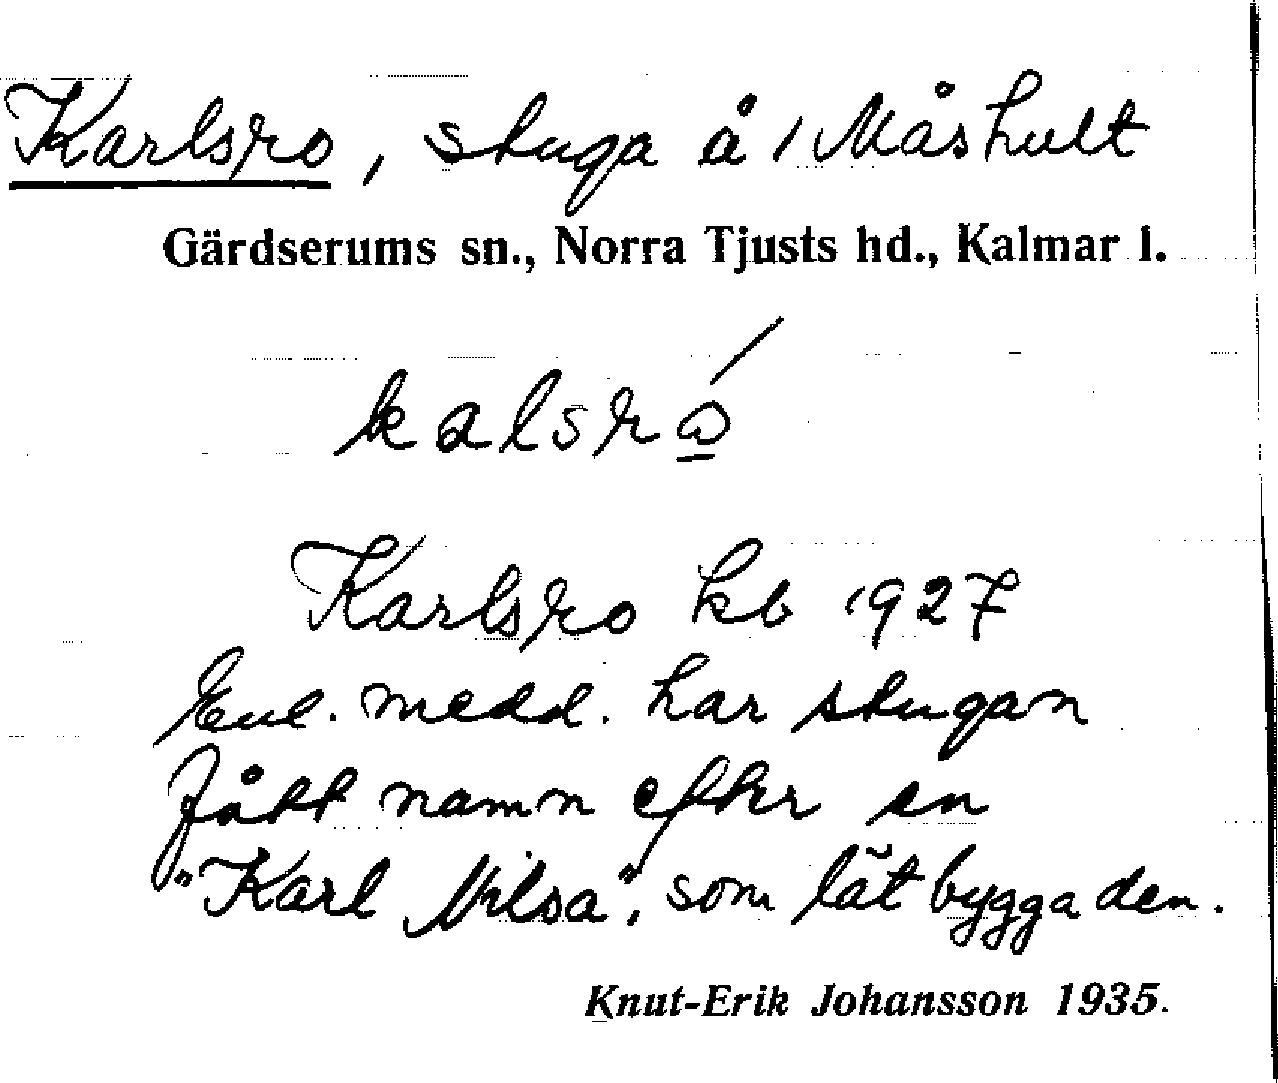 Karlsro, stuga å 1 Måshult
Gärdserums sn., Norra Tjusts hd., Kalmar l.
kalsrώ̲
Karlsro kb 1927
Enl. medd. har stugan
fått namn efter en
"Karl Nilsa", som låt bygga den.
Knut-Erik Johansson 1935.